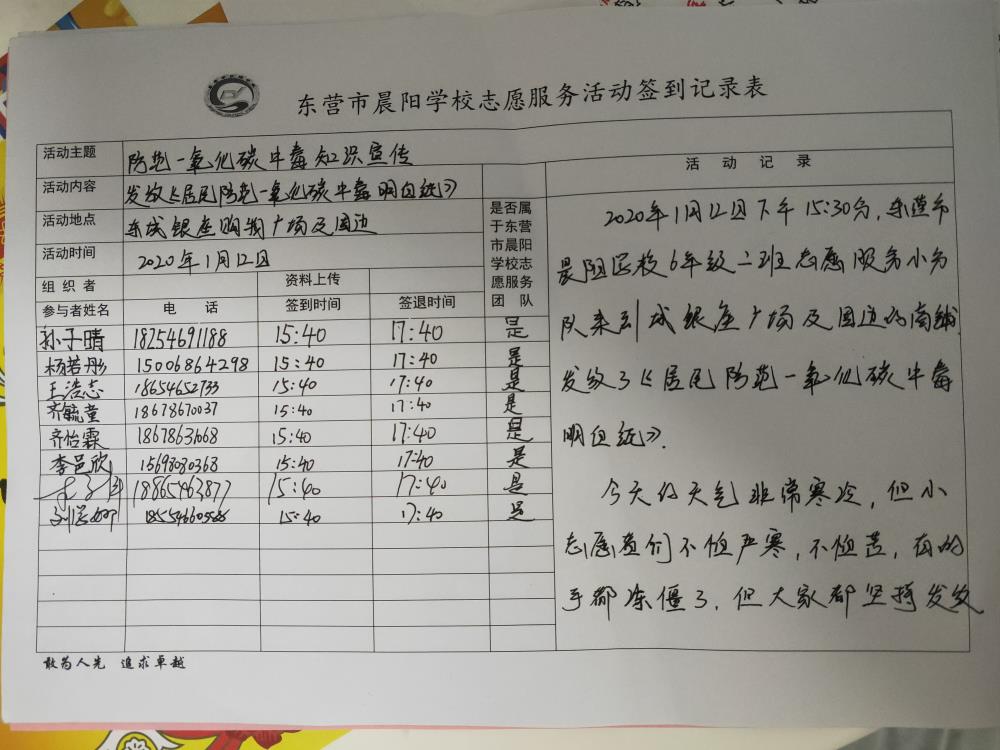 东营市晨阳学校志愿服务活动签到记录表
活动主题 防范一氧化碳中毒知识宣传
活动内容 发放《居民防范一氧化碳中毒明白纸》
活动地点 东城银座购物广场及周边
活动时间 2020年1月12日
组织者 资料上传
参与者姓名 电话 签到时间 签退时间
是否属
于东营
市晨阳
学校志
愿服务
团队
孙子晴 18254691188 15:40 17:40 是
杨若彤 15006864298 15:40 17:40 是
王浩志 18654652733 15:40 17:40 是
齐毓童 18678670037 15:40 17:40 是
齐怡霖 15:40 17:40 是
李邑欣 15698080368 15:40 17:40 是
18865463877 15:40 17:40 是
15:40 17:40 是
活动记录
2020年1月12日下午15:30分,东营市
晨阳学校6年级二班志愿服务小分
队来到东城银座广场及周边的商铺
发放了《居民防范一氧化碳中毒
明白纸》.
今天的天气非常寒冷,但小
志愿者们不怕严寒,不怕苦,有的
手都冻僵了,但大家都坚持发放
敢为人先 追求卓越